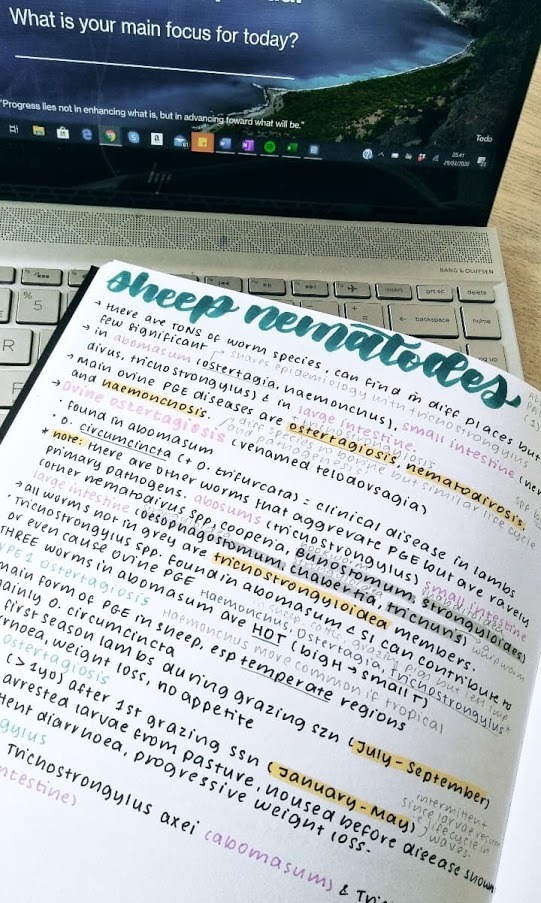 What is your main focus for today?
"Progress lies not in enhancing what is, but in advancing toward what will be."
Todo
05:41
29/03/2020
BANG & OLUFSEN
insert
prt sc
delete
backspace
home
% 5
R
F
sheep nematodes
→ there are TONS of worm species, can find in diff places but
few significant shaves epidemiology with trichostrongylus
→ in abomasum (ostertagia, haemonchus), small intestine
divus, trichostrongylus) & in large intestine.
→ Main ovine PGE diseases are ostertagiosis, nematodirosis,
and haemonchosis.
diff species in bovine but similar life cycle
and pathogenesis
→ Ovine ostertagiosis (renamed teladorsagia)
· found in abomasum
· O. circumcincta (+ O. trifurcata) = clinical disease in lambs
* note: there are other worms that aggrevate PGE but are rarely
primary pathogens. abosums (trichostrongylus) small intestine
(other nematodivus spp, cooperia, bunostomum, strongyloides)
large intestine (oesophagostomum, chabertia, trichuris) whipworm
→ all worms not in grey are trichostrongyloidea members.
· Trichostrongylus spp. found in abomasum & SI can contribute to
or even cause ovine PGE
THREE worms in abomasum are HOT (bigH → small T)
Haemonchus, Ostertagia, Trichostrongylus
TYPE 1 ostertagiosis
Haemonchus more common if tropical
main form of PGE in sheep, esp temperate regions
mainly O. circumcincta
first season lambs during grazing szn (July - September)
diarrhoea, weight loss, no appetite
ostertagiosis
(> 1yo) after 1st grazing ssn (January - May)
intermittent
since larvae resume
lifecycle in
waves.
arrested larvae from pasture, housed before disease shown
intermittent diarrhoea, progressive weight loss.
Trichostrongylus axei (abomasum) &
intestine)